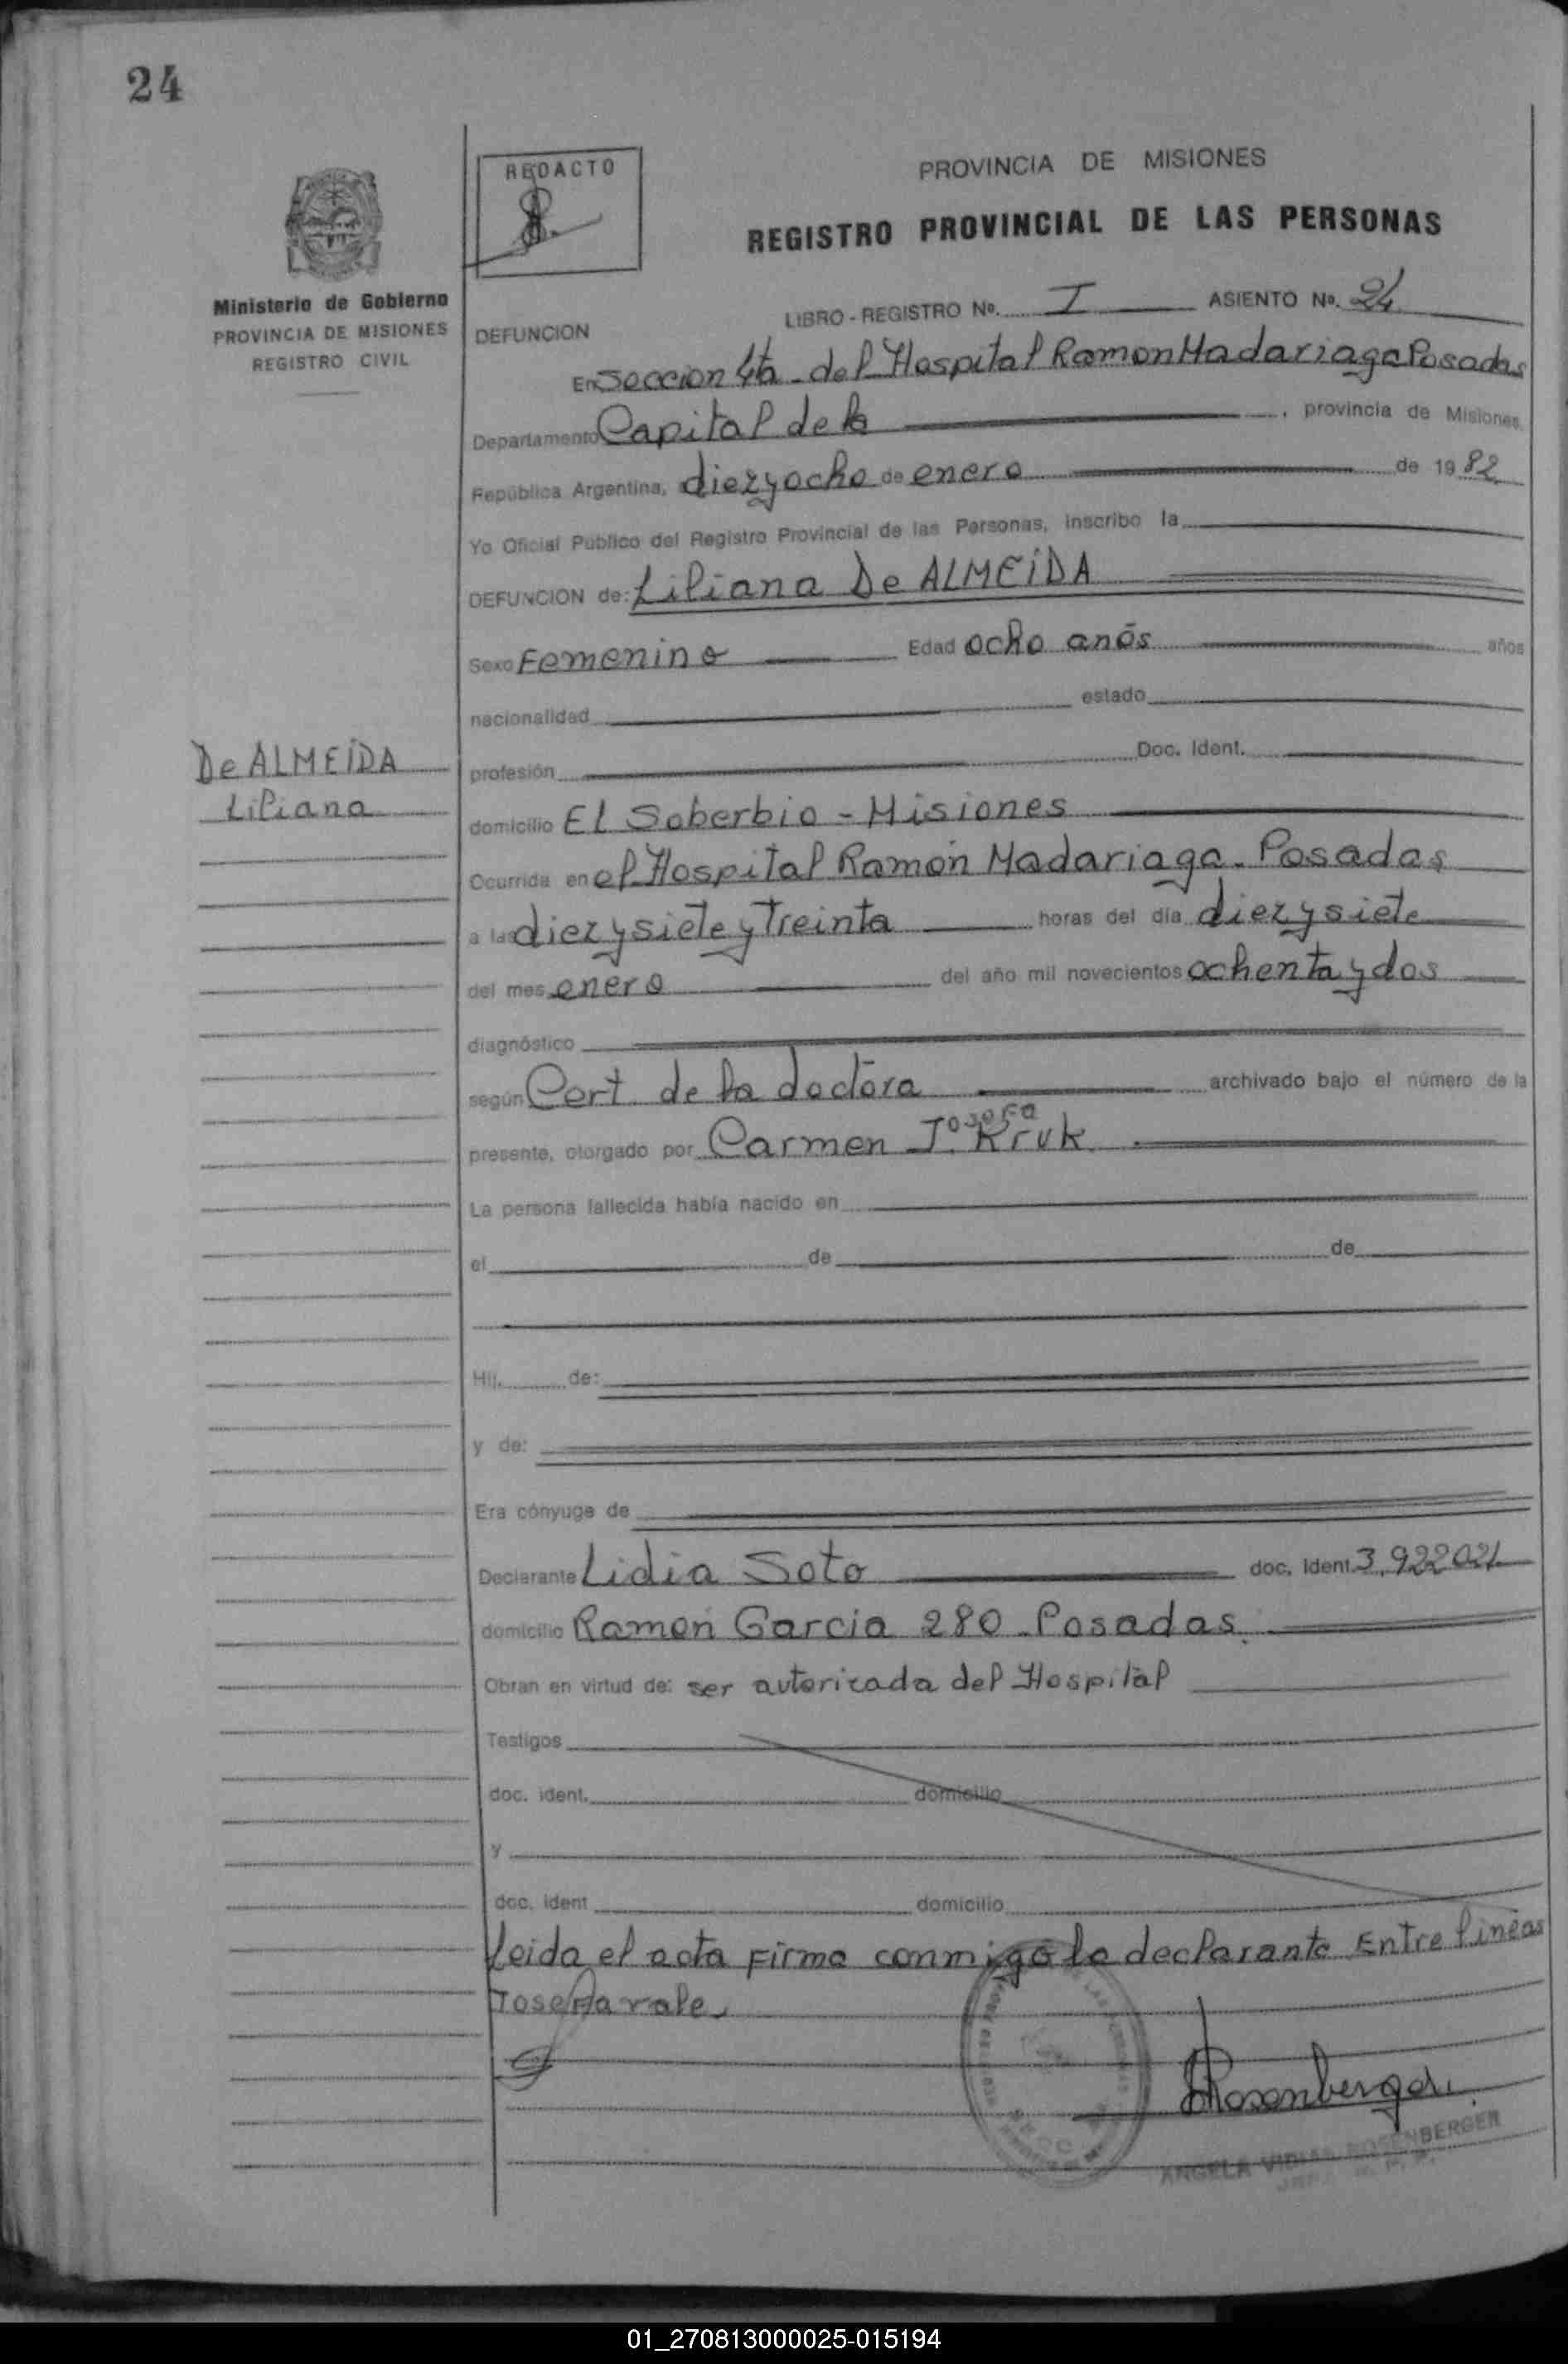 24
REDACTO
PROVINCIA DE MISIONES
REGISTRO PROVINCIAL DE LAS PERSONAS
Ministerio de Gobierno
PROVINCIA DE MISIONES
REGISTRO CIVIL
LIBRO - REGISTRO Nº. I ASIENTO Nº. 24
DEFUNCION
En Seccion 4ta. del Hospital Ramon Madariaga Posadas
Departamento Capital de la , provincia de Misiones.
República Argentina, diez y ocho de enero de 1982
Yo Oficial Público del Registro Provincial de las Personas, inscribo la
DEFUNCION de: Liliana De ALMEIDA
Sexo Femenino Edad ocho años años
nacionalidad estado
De ALMEIDA
Liliana
profesión Doc. Ident.
domicilio El Soberbio - Misiones
Ocurrida en el Hospital Ramón Madariaga - Posadas
a las diez y siete y Treinta horas del día diez y siete
del mes enero del año mil novecientos ochenta y dos
diagnóstico
según Cert. de la doctora archivado bajo el número de la
presente, otorgado por Carmen J. Josefa Kruk
La persona fallecida había nacido en
el de de
Hij. de:
y de:
Era cónyuge de
Declarante Lidia Soto doc. Ident. 3.922021
domicilio Ramon Garcia 280 - Posadas.
Obran en virtud de: ser autorizada del Hospital
Testigos
doc. ident. domicilio
y
doc. ident domicilio
Leida el acta firma conmigo la declarante Entre lineas
Josefa vale
Rosenberger
ANGELA ROSENBERGER
01_270813000025-015194